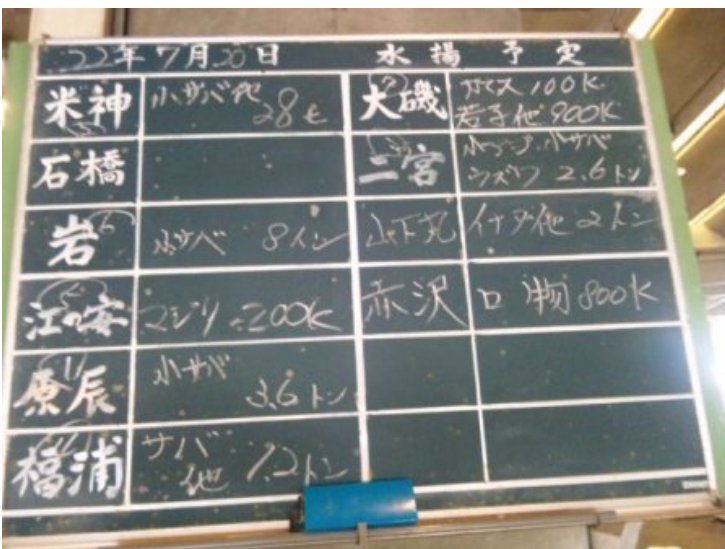 22年7月20日 水揚予定
米神 小サバ他 28t
大磯 カマス100K
岩子他 900K
石橋
二宮 小アジ 小サバ
ウズワ 2.6トン
岩 小サバ 8トン
山下丸 イナダ他2トン
江の安 マジリ 200K
赤沢 口物800K
原辰 小サバ
3.6トン
福浦 サバ
他 1.2トン